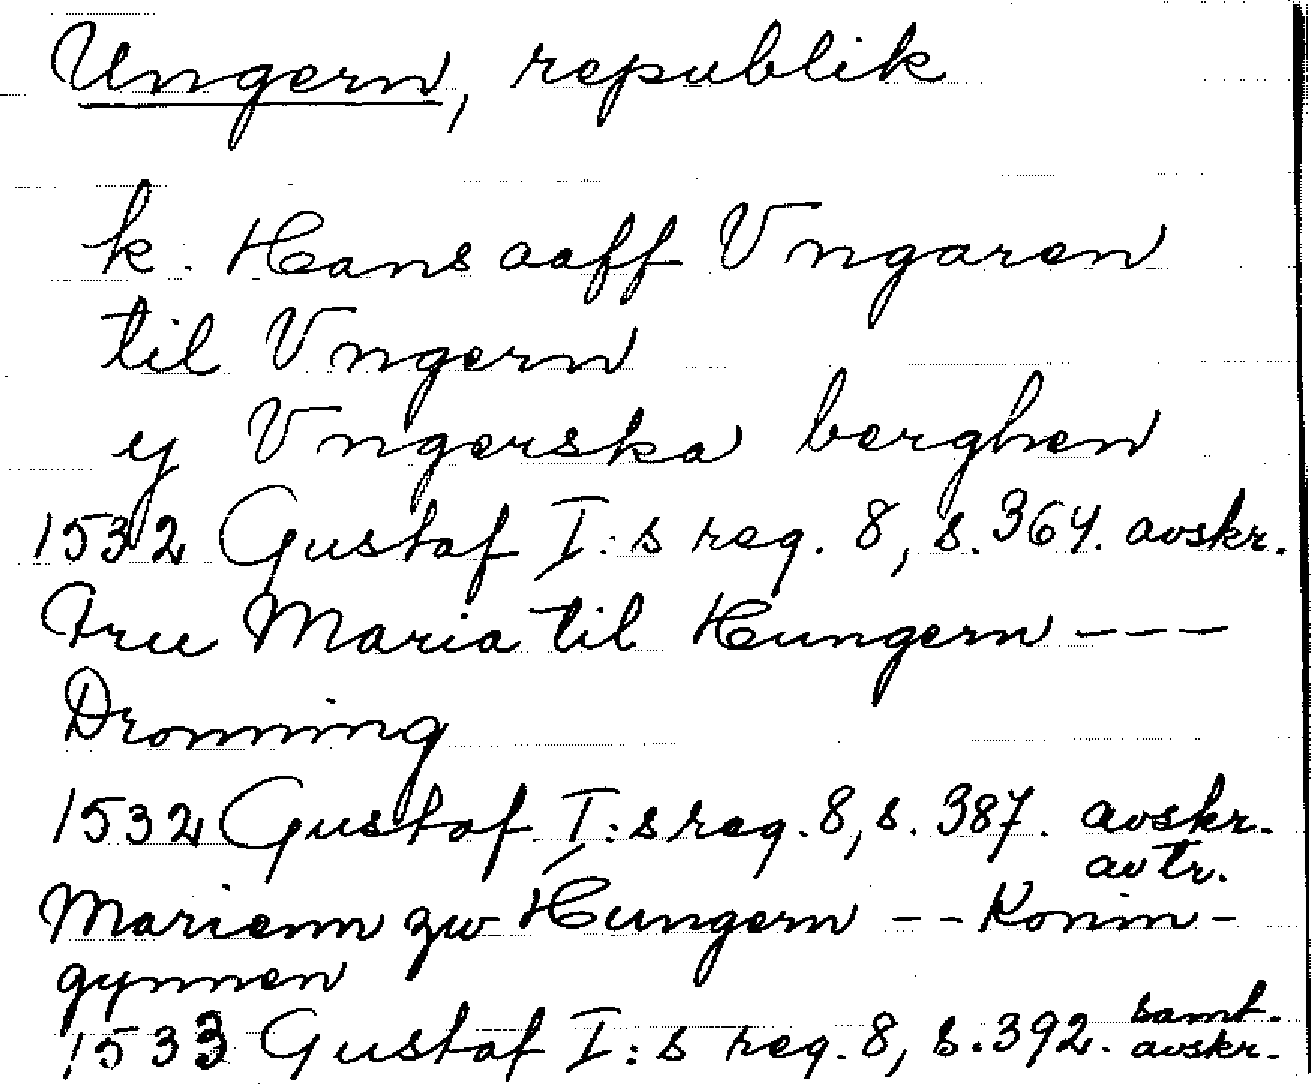 Ungern, republik
k. Hans aaff Vngaren
til Vngern
y Vngerska berghen
1532 Gustaf I:s reg. 8, s. 364. avskr.
Fru Maria til Hungern ---
Dronning
1532 Gustaf I:s reg. 8, s. 387. avskr.
av tr.
Marienn zw Hungern -- Konin-
gynnen
1533 Gustaf I:s reg. 8, s. 392. samt.
avskr.